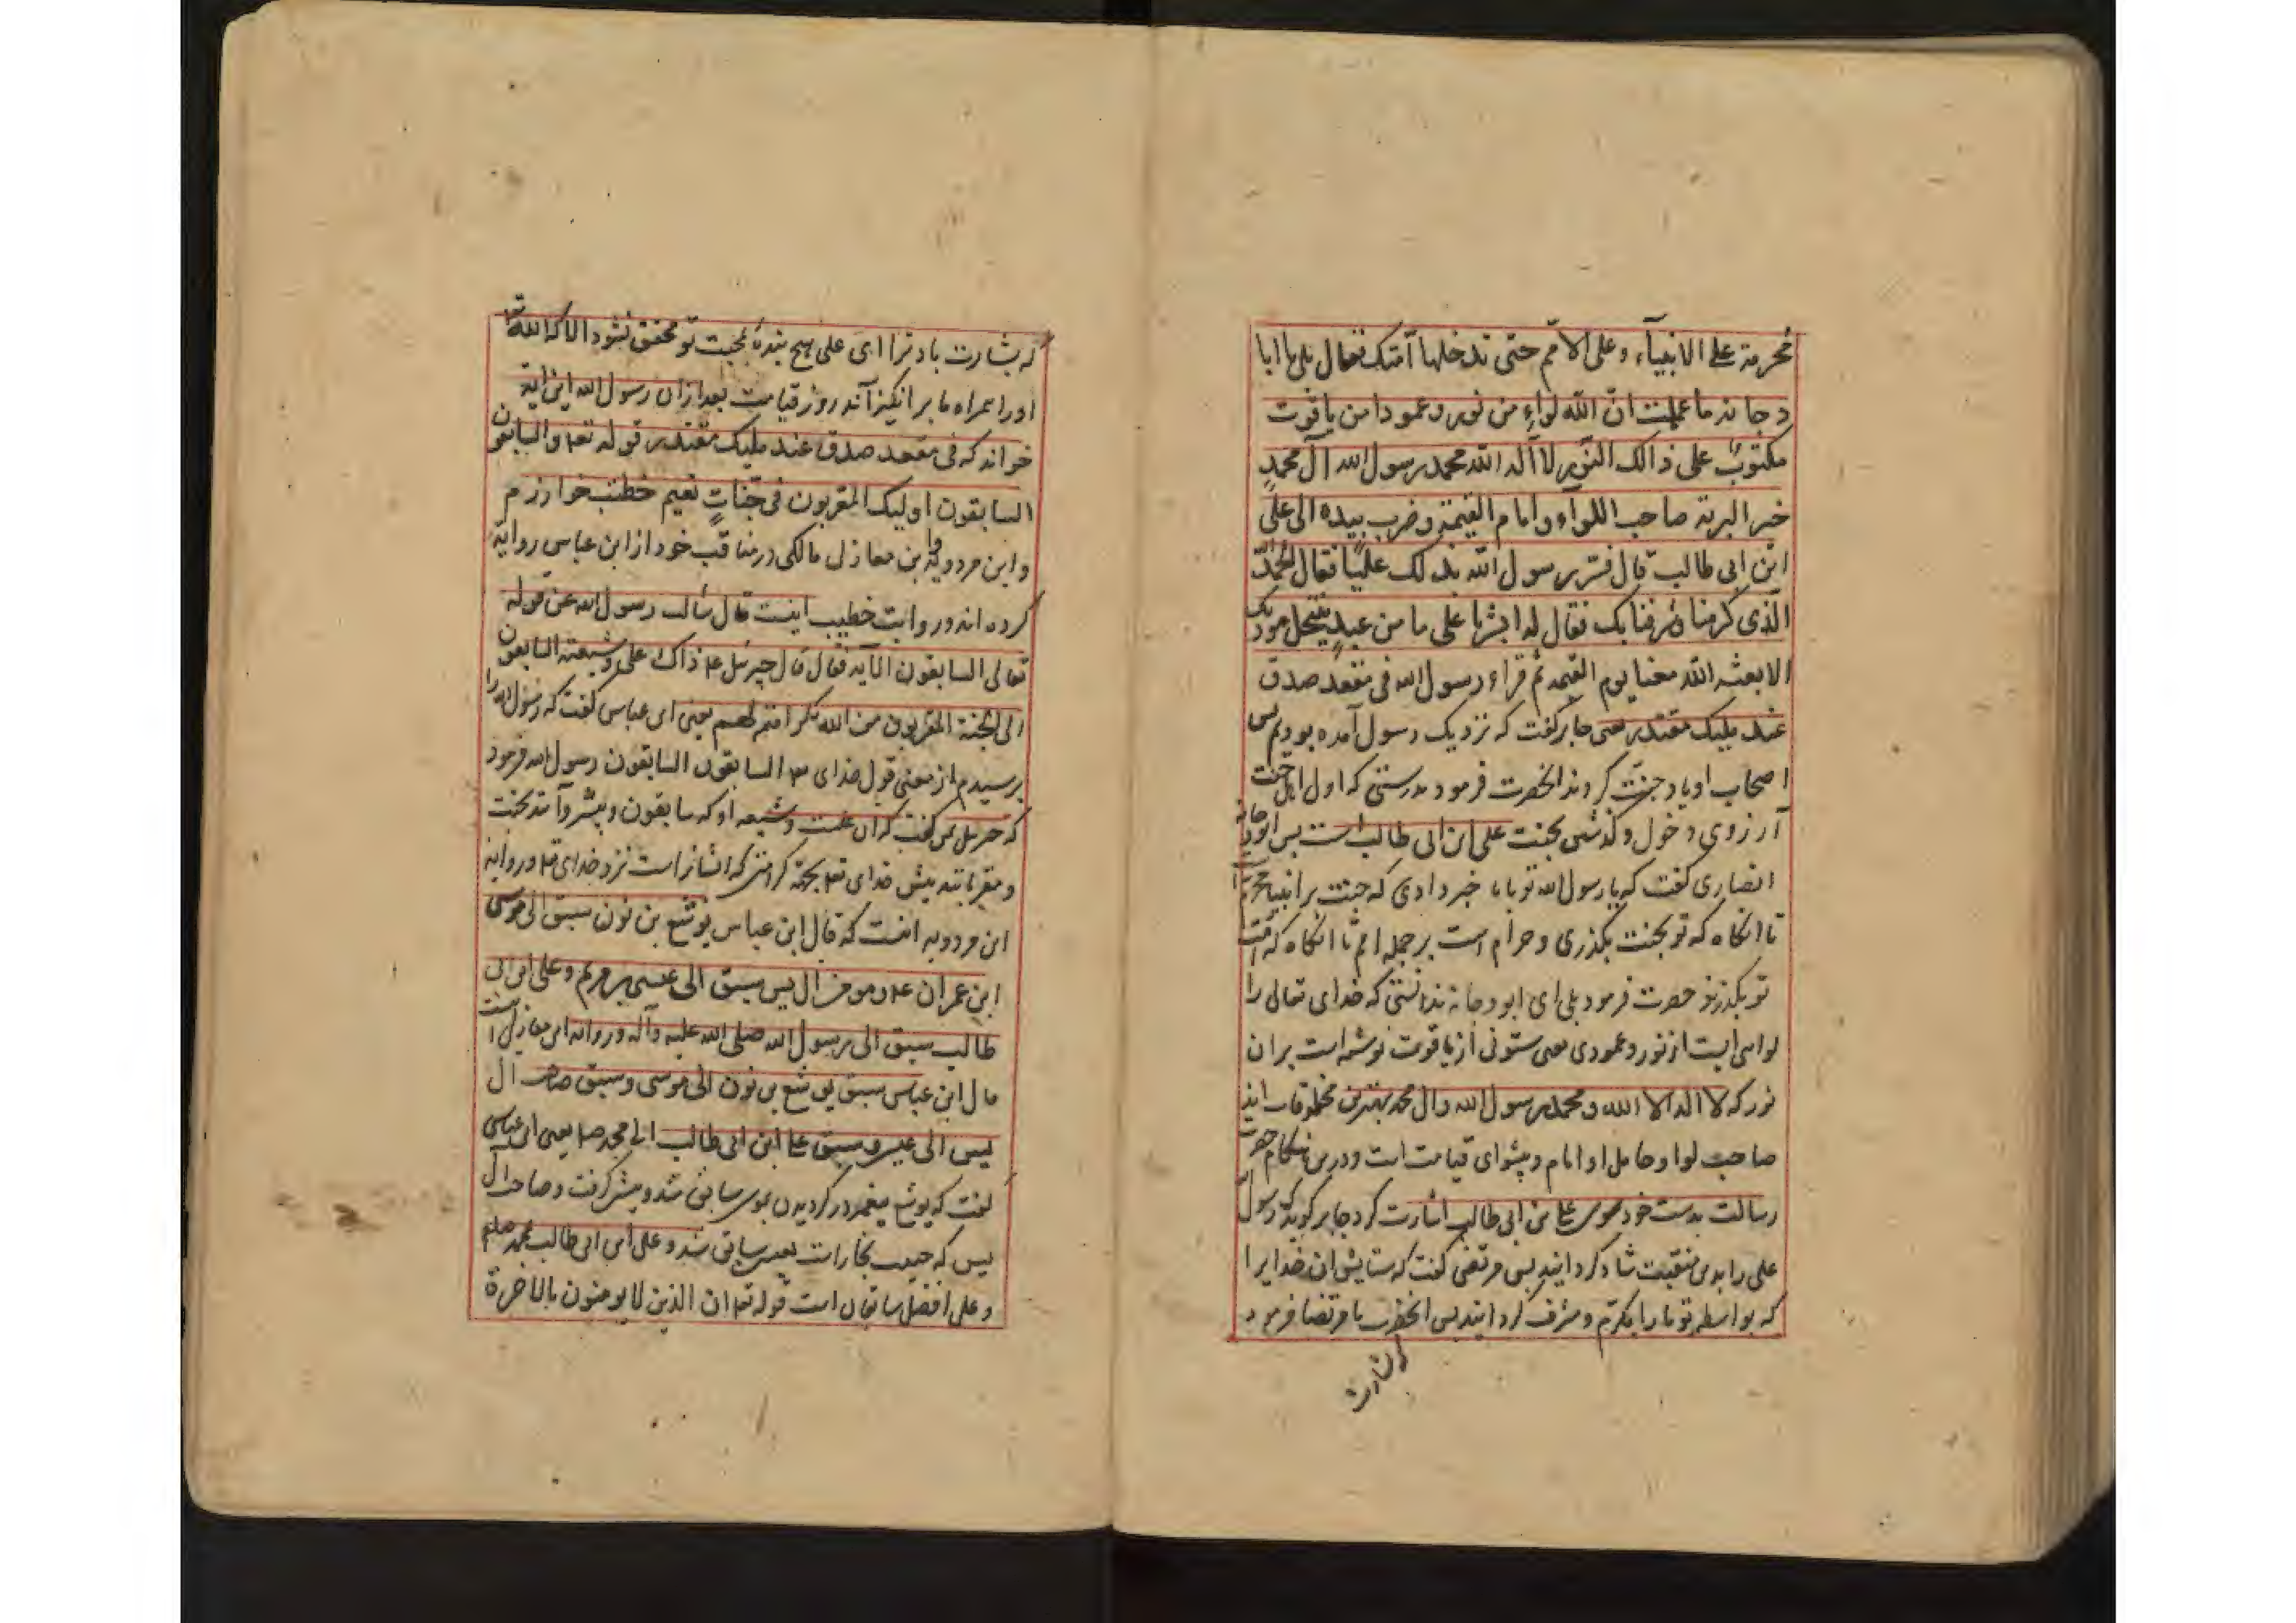 محرمة علی الانبیآء وعلی الامّم حتی تدخلها آمتک فقال بلی یا ابا
دجانه ما عملت انّ الله لواءٍ من نور وعمودا من یاقوت
مکتوبٌ علی ذالک النّور لا آله الا الله محمد رسول الله آل محمدٍ
خیر البریة صاحب اللوآء و امام القیمة و ضرب بیده الی علی
ابن ابی طالب قال فسّر رسول الله بذلک علیّا فقال الحمد لله
الّذی کرمنا و شرفنا بک فقال له ابشر یا علی ما من عبدٍ ینتحل مودتک
الا بعثه الله معنا یوم القیمه ثم قراء رسول الله فی مقعد صدق
عند ملیک مقتدر یعنی جابر گفت که نزدیک رسول آمده بودیم پس
اصحاب او یاد جنّت کردند انحضرت فرمود بدرستی که اول اهل جنت
آرزوی دخول و گذشتن بجنت علی ابن ابی طالب است پس ابودجانه
انصاری گفت که یا رسول الله تو ما را خبر دادی که جنت بر انبیا محرمست
تا انکاه که تو بجنت بگذری و حرام است بر جمله امم تا انکاه که امت
تو بگذرند حضرت فرمود بلی ای ابودجانه ندانستی که خدای تعالی را
لوای ایست از نور و عمودی یعنی ستونی از یاقوت نوشته است بران
نور که لا اله الا الله و محمد رسول الله و ال محمد بهترین مخلوقات اند
صاحب لوا و حامل او امام و پیشوای قیامت است و درین هنکام حضرت
رسالت بدست خود سوی علی بن ابی طالب اشارت کرد جابر کوید که رسول
علی را بدین منقبت شاد کردانید پس مرتضی گفت که ستایش ان خدایرا
که بواسطه تو ما را مکرّم و مشرف کردانید پس انحضرت با مرتضا فرمود
که بشارت
که بشارت باد ترا ای علی هیچ بندهٔ بمحبت تو محقق نشود الا که الله تع
اورا همراه ما بر انکیزاند روز قیامت بعد ازان رسول الله این ایة
خواند که فی مقعد صدق عند ملیک مقتدر قوله تع والسابقون
السابقون اولیک المقربون فی جنّاتٍ نعیم خطیب خوارزم
و ابن مردویه و ابن معازل مالکی در مناقب خود از ابن عباس روایة
کرده اند و روایت خطیب اینست قال سألت رسول الله عن قوله
تعالی السابقون الآیه فقال قال جبرئیل ذاک علی و شیعته السابقون
الی الجنة المقربون من الله بکرامته لهم یعنی ابن عباس گفت که رسول الله را
پرسیدم از معنی قول خدای السابقون السابقون رسول الله فرمود
که جبریل بمن گفت که ان علیست و شیعه او که سابقون و پیشروانند بجنت
و مقربانند پیش خدای تع بجهة کرامتی که ایشانراست نزد خدای و روایة
ابن مردویه اینست که قال ابن عباس یوشع بن نون سبق الی موسی
ابن عمران و مومن ال یس سبق الی عیسی بن مریم و علی ابن ابی
طالب سبق الی رسول الله صلی الله علیه وآله و روایة ابن معازل اینست
قال ابن عباس سبق یوشع بن نون الی موسی و سبق صاحب ال
یس الی عیسی و سبق علی ابن ابی طالب الی محمد یعنی ابن عباس
گفت که یوشع پیغمبر در گرویدن بموسی سابق شد و پیشی گرفت و صاحب آل
یس که حبیب نجارات بعیسی سابق شد و علی ابن ابی طالب بمحمد صلعم
و علی افضل سابقان است قوله تع ان الذین لا یومنون بالاخرة